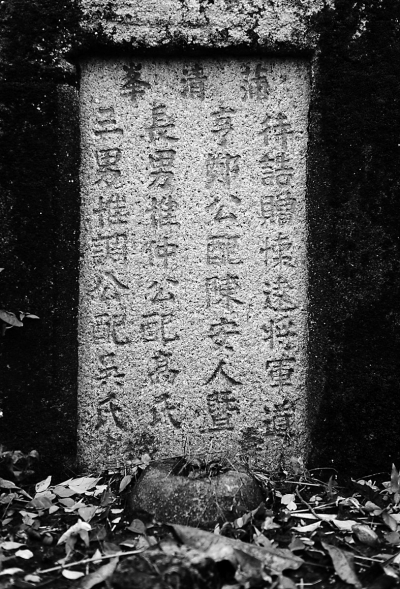 蒲清峯
待誥贈懷遠將軍道
亨鄭公配陳安人暨
長男推仲公配高氏
三男推調公配吳氏